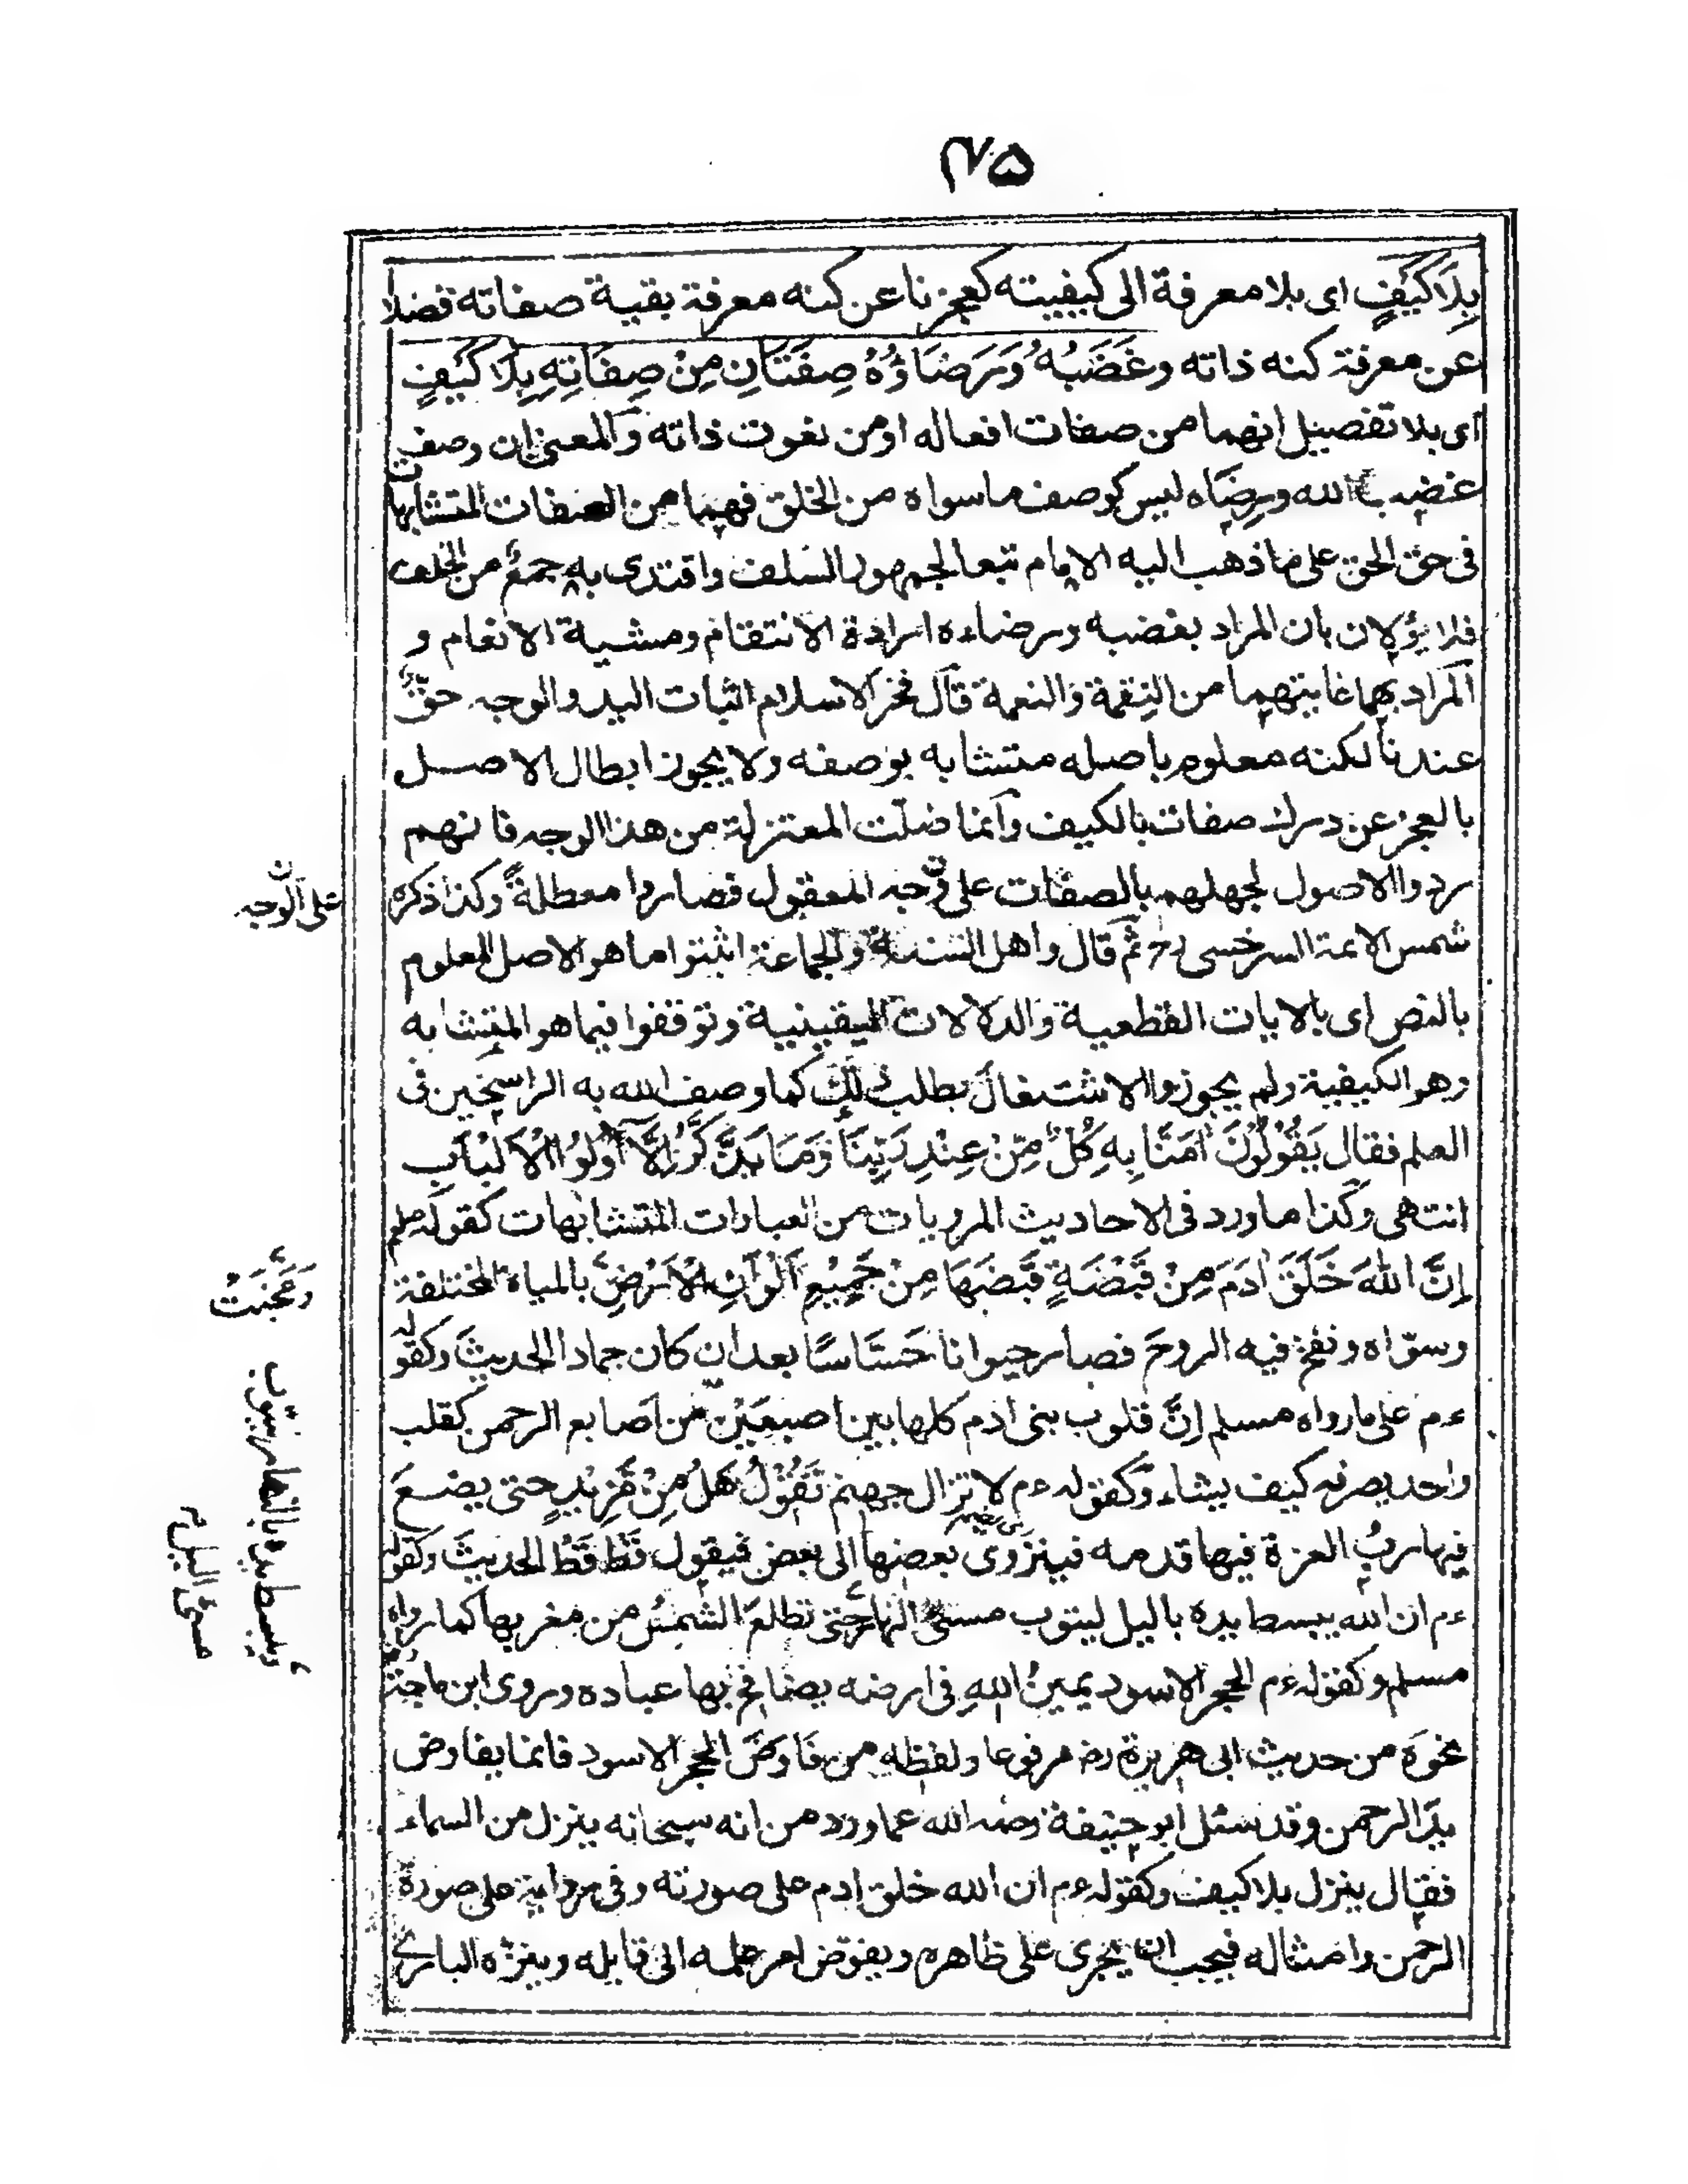 ٧٥
بِلَا كَيْفٍ اى بلا معرفة الى كيفيته كعجزنا عن كنه معرفة بقية صفاته فضلا
عن معرفة كنه ذاته وَغَضَبُهُ وَرَضَاؤُهُ صِفَتَانِ مِنْ صِفَاتِهِ بِلَا كَيْفٍ
اى بلا تفصيل انهما من صفات افعاله او من نعوت ذاته والمعنى ان وصف
غضب الله ورضاه ليس كوصف ما سواه من الخلق فهما من الصفات المتشابهات
فى حق الحق على ما ذهب اليه الامام تبعا لجمهور السلف واقتدى به جمع من الخلف
فلا يؤلان بان المراد بغضبه ورضاءه ارادة الانتقام ومشية الانعام و
المراد بهما غايتهما من النقمة والنعمة قال فخر الاسلام اثبات اليد والوجه حق
عندنا لكنه معلوم باصله متشابه بوصفه ولا يجوز ابطال الاصل
بالعجز عن درك صفات بالكيف وانما ضلت المعتزلة من هذا الوجه فانهم
ردوا الاصول لجهلهم بالصفات على وجه المعقول فصاروا معطلة وكذا ذكره
شمس الائمة السرخسى رح ثم قال واهل السنة والجماعة اثبتوا ما هو الاصل المعلوم
بالنص اى بالايات القطعية والدلالات اليقينية وتوقفوا فيما هو المتشابه
وهو الكيفية ولم يجوزوا الاشتغال بطلب ذلك كما وصف الله به الراسخين فى
العلم فقال يَقُوْلُوْنَ اٰمَنَّا بِهِ كُلٌّ مِّنْ عِنْدِ رَبِّنَا وَمَا يَذَّكَّرُ اِلَّا اُولُوا الْاَلْبَابِ
انتهى وكذا ما ورد فى الاحاديث المرويات من العبارات المتشابهات كقوله صلم
اِنَّ اللهَ خَلَقَ اٰدَمَ مِنْ قَبْضَةٍ قَبَضَهَا مِنْ جَمِيْعِ اَلْوَانِ الْاَرْضِ بالمياه المختلفة
وسوّاه ونفخ فيه الروح فصار حيوانا حَسَّاسًا بعد ان كان جمادا الحديث وكقوله
ءم على ما رواه مسلم اِنَّ قلوب بنى ادم كلها بين اصبعين من اصابع الرحمن كقلب
واحد يصرفه كيف يشاء وكقوله ءم لا تزال جهنم تَقُوْلُ هَلْ مِنْ مَّزِيْدٍ حتى يضع
فيها رب العزة فيها قدمه فينزوى بعضها الى بعض فيقول قط قط الحديث وكقوله
ءم ان الله يبسط يده بالليل ليتوب مسئ النهار حتى تطلع الشمس من مغربها كما رواه
مسلم وكقوله ءم الحجر الاسود يمين الله فى ارضه يصافح بها عباده وروى ابن ماجة
نحوه من حديث ابى هريرة رض مرفوعا ولفظه من فاوض الحجر الاسود فانما يفاوض
يد الرحمن وقد سئل ابو حنيفة رحمه الله عما ورد من انه سبحانه ينزل من السماء
فقال ينزل بلا كيف وكقوله ءم ان الله خلق ادم على صورته وفى رواية على صورة
الرحمن وامثاله فيجب ان يجرى على ظاهره ويفوّض امر علمه الى قايله وينزّه البارى
على الوجه
وَعُجِنَتْ
ويبسط يده بالنهار ليتوب
مسئ الليل